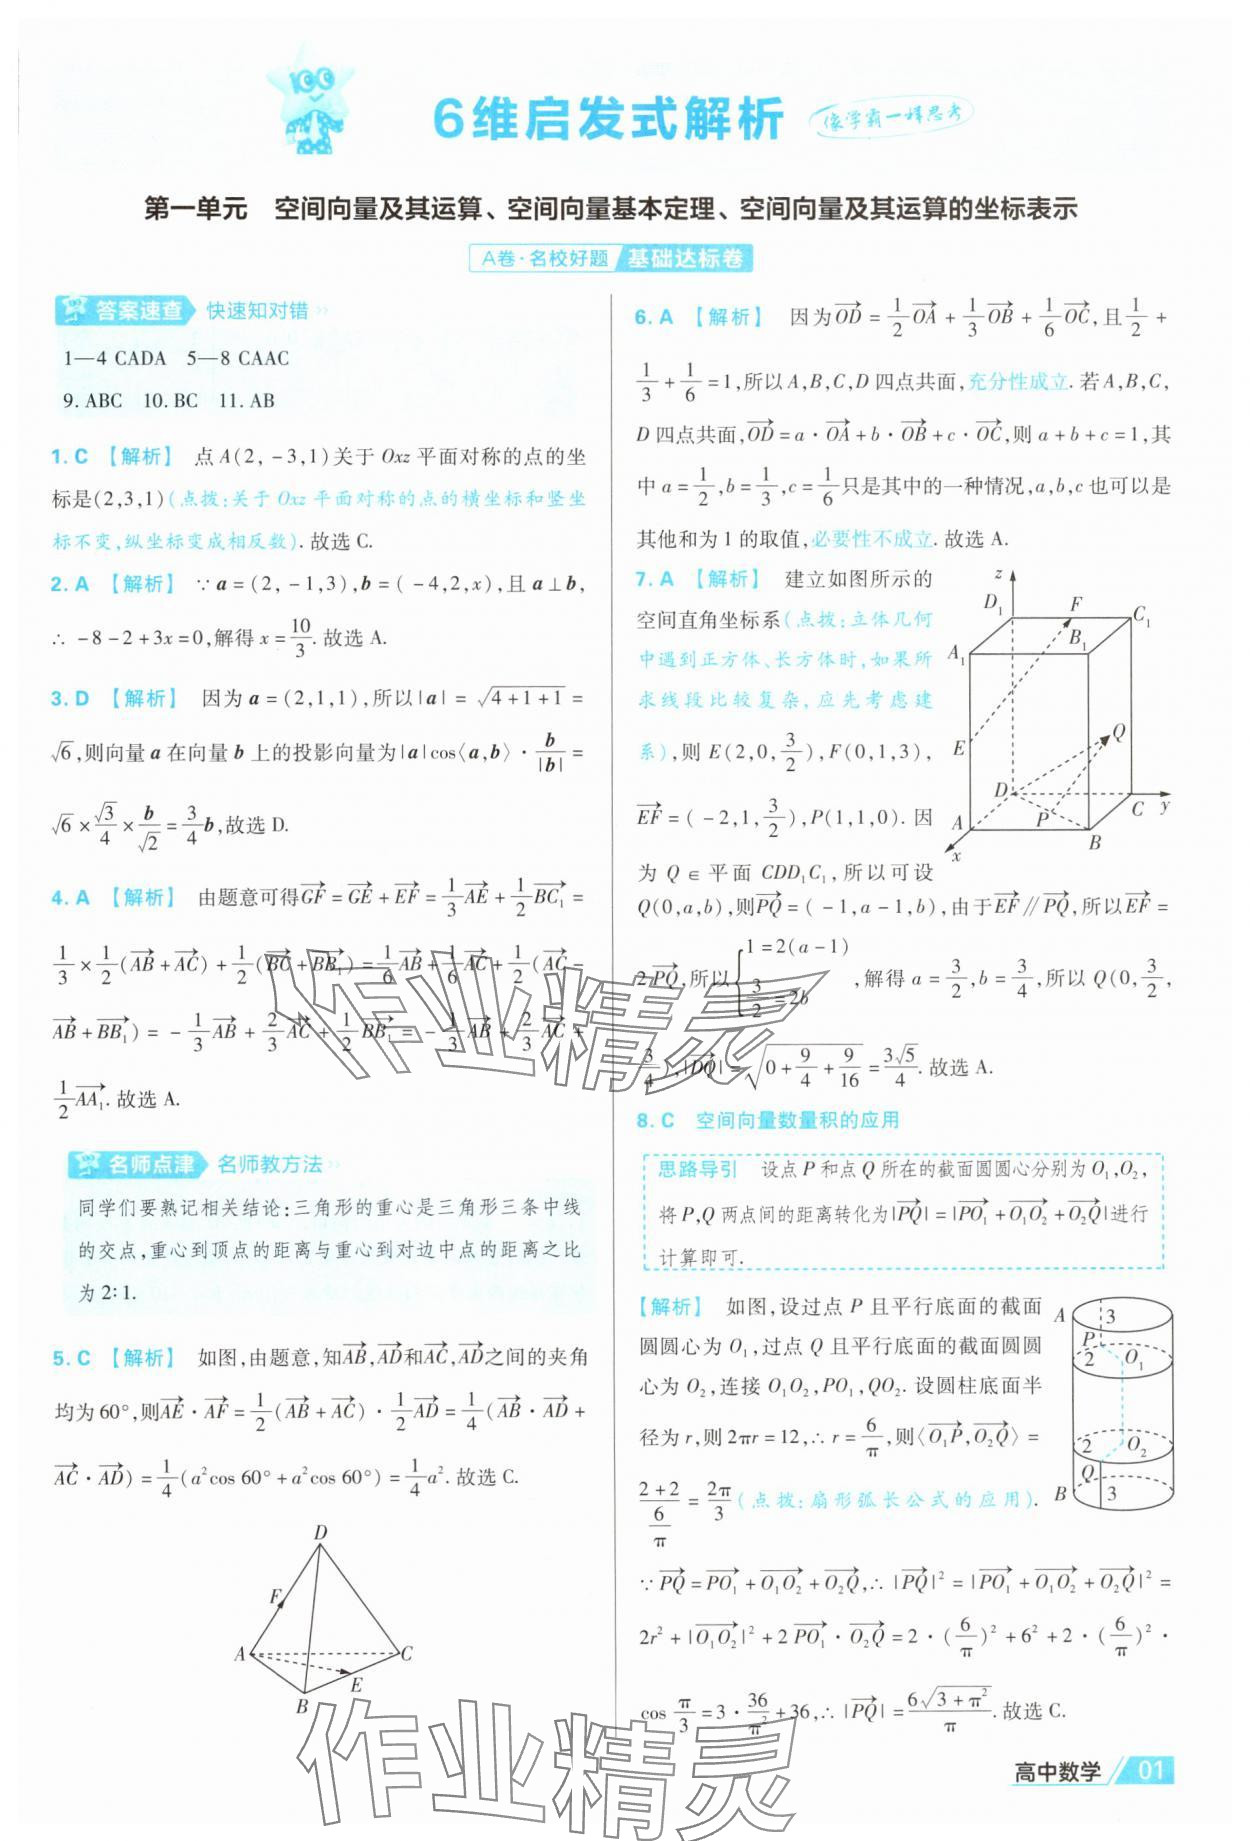 6维启发式解析 像学霸一样思考
第一单元 空间向量及其运算、空间向量基本定理、空间向量及其运算的坐标表示
A卷·名校好题 基础达标卷
答案速查 快速知对错
1—4 CADA 5—8 CAAC
9. ABC 10. BC 11. AB
1. C 【解析】 点 A(2,-3,1)关于 Oxz 平面对称的点的坐
标是(2,3,1)(点拨:关于 Oxz 平面对称的点的横坐标和竖坐
标不变,纵坐标变成相反数). 故选 C.
2. A 【解析】 ∵ a=(2,-1,3),b=(-4,2,x),且 a⊥b,
∴ -8-2+3x=0,解得 x=10/3. 故选 A.
3. D 【解析】 因为 a=(2,1,1),所以|a|=√(4+1+1)=
√6,则向量 a 在向量 b 上的投影向量为|a|cos⟨a,b⟩·b/|b|=
√6×√3/4×b/√2=3/4b,故选 D.
4. A 【解析】 由题意可得GF→=GE→+EF→=1/3AE→+1/2BC₁→=
1/3×1/2(AB→+AC→)+1/2(BC→+BB₁→)=1/6AB→+1/6AC→+1/2(AC→-
AB→+BB₁→)=-1/3AB→+2/3AC→+1/2BB₁→=-1/3AB→+2/3AC→+
1/2AA₁→. 故选 A.
名师点津 名师教方法
同学们要熟记相关结论:三角形的重心是三角形三条中线
的交点,重心到顶点的距离与重心到对边中点的距离之比
为 2:1.
5. C 【解析】 如图,由题意,知AB→,AD→和AC→,AD→之间的夹角
均为 60°,则AE→·AF→=1/2(AB→+AC→)·1/2AD→=1/4(AB→·AD→+
AC→·AD→)=1/4(a²cos 60°+a²cos 60°)=1/4a². 故选 C.
D
F
A
C
E
B
6. A 【解析】 因为OD→=1/2OA→+1/3OB→+1/6OC→,且1/2+
1/3+1/6=1,所以 A,B,C,D 四点共面,充分性成立. 若 A,B,C,
D 四点共面,OD→=a·OA→+b·OB→+c·OC→,则 a+b+c=1,其
中 a=1/2,b=1/3,c=1/6只是其中的一种情况,a,b,c 也可以是
其他和为 1 的取值,必要性不成立. 故选 A.
7. A 【解析】 建立如图所示的
空间直角坐标系(点拨:立体几何
中遇到正方体、长方体时,如果所
求线段比较复杂,应先考虑建
系),则 E(2,0,3/2),F(0,1,3),
EF→=(-2,1,3/2),P(1,1,0). 因
为 Q∈平面 CDD₁C₁,所以可设
z
D₁
F
C₁
A₁
B₁
E
Q
D
P
C
y
A
B
x
Q(0,a,b),则PQ→=(-1,a-1,b),由于EF→∥PQ→,所以EF→=
2PQ→,所以{1=2(a-1) 3/2=2b,解得 a=3/2,b=3/4,所以 Q(0,3/2,
3/4),|DQ→|=√(0+9/4+9/16)=3√5/4. 故选 A.
8. C 空间向量数量积的应用
思路导引 设点 P 和点 Q 所在的截面圆圆心分别为 O₁,O₂,
将 P,Q 两点间的距离转化为|PQ→|=|PO₁→+O₁O₂→+O₂Q→|进行
计算即可.
【解析】 如图,设过点 P 且平行底面的截面
圆圆心为 O₁,过点 Q 且平行底面的截面圆圆
心为 O₂,连接 O₁O₂,PO₁,QO₂. 设圆柱底面半
径为 r,则 2πr=12,∴ r=6/π,则⟨O₁P→,O₂Q→⟩=
(2+2)/(6/π)=2π/3(点拨:扇形弧长公式的应用).
A
3
P
2
O₁
2
O₂
Q
B
3
∵PQ→=PO₁→+O₁O₂→+O₂Q→,∴ |PQ→|²=|PO₁→+O₁O₂→+O₂Q→|²=
2r²+|O₁O₂→|²+2PO₁→·O₂Q→=2·(6/π)²+6²+2·(6/π)²·
cos π/3=3·36/π²+36,∴ |PQ→|=6√(3+π²)/π. 故选 C.
高中数学 01
作业精灵
作业精灵